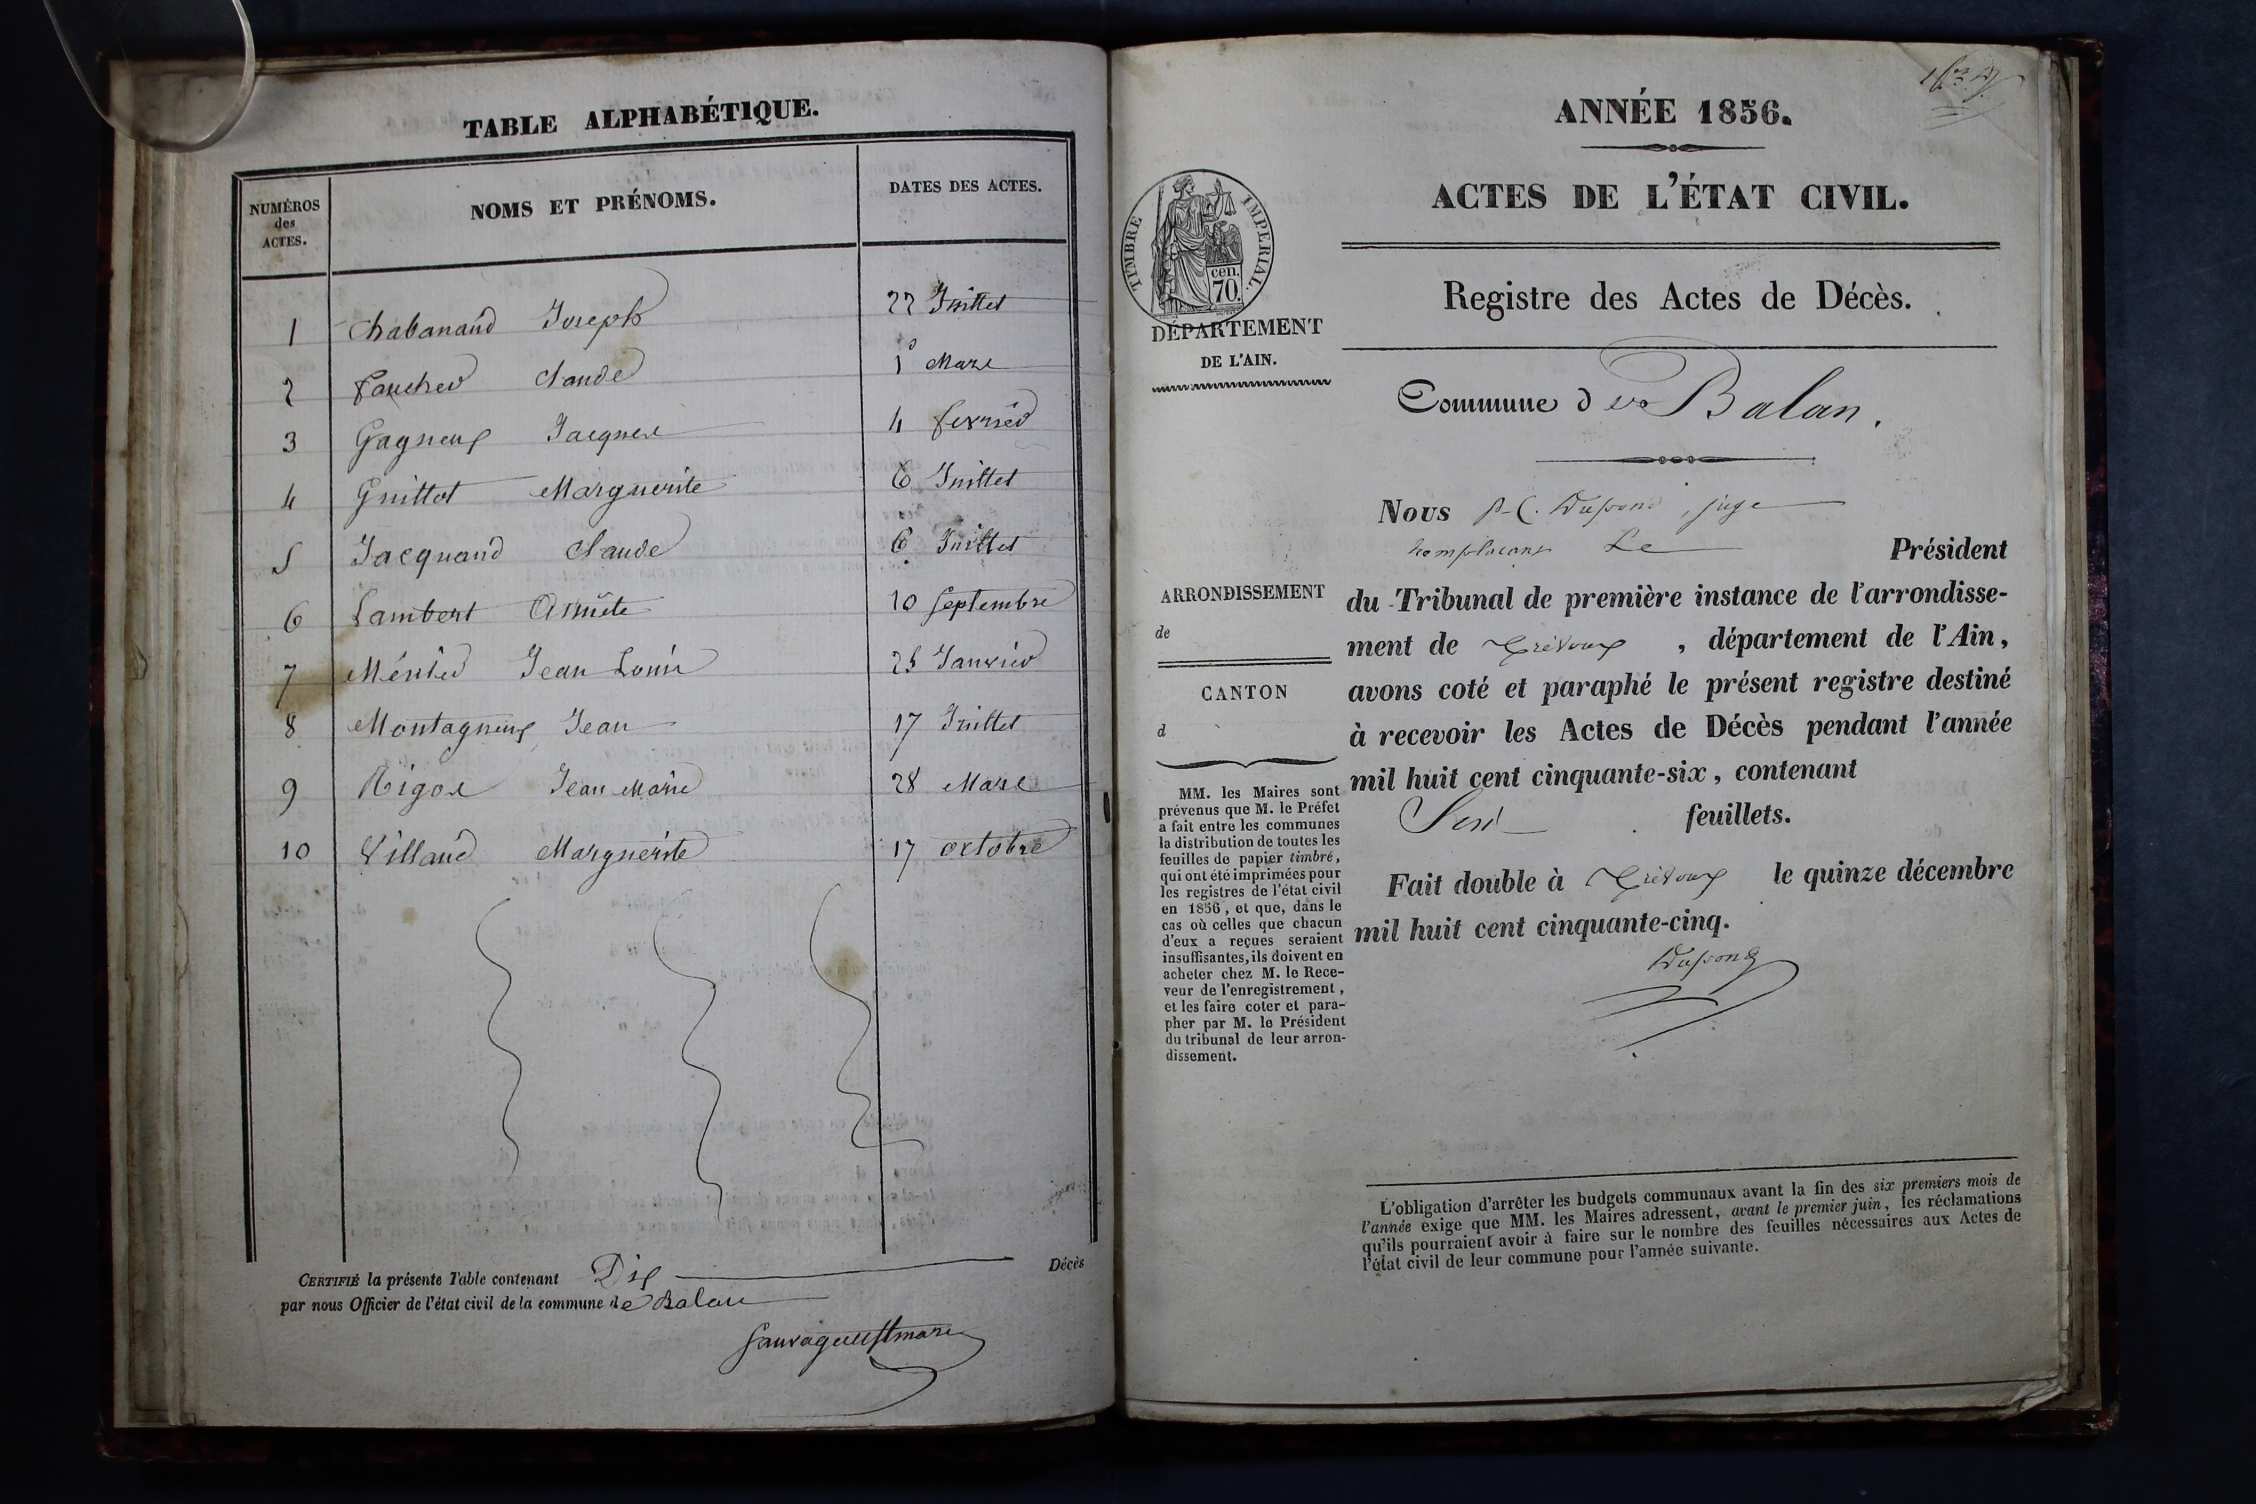 TABLE ALPHABÉTIQUE.
NUMÉROS des ACTES. NOMS ET PRÉNOMS. DATES DES ACTES.
1 Chabanaud Joseph 22 Juillet
2 Faucher Claude 1er Mars
3 Gagneux Jacques 4 fevrier
4 Guillot Marguerite 6 Juillet
5 Jacquand Claude 6 Juillet
6 Lambert 10 Septembre
7 Jean Louis 25 Janvier
8 Montagneux Jean 17 Juillet
9 Rigos Jean Marie 28 Mars
10 Villaud Marguerite 17 octobre
CERTIFIÉ la présente Table contenant Dix Décès
par nous Officier de l'état civil de la commune de Balan
maire
ANNÉE 1856.
ACTES DE L'ÉTAT CIVIL.
TIMBRE IMPÉRIAL.
cen.
70.
DÉPARTEMENT
DE L'AIN.
Registre des Actes de Décès.
Commune de Balan.
Nous juge
remplaçant Le Président
du Tribunal de première instance de l'arrondisse-
ment de Trévoux, département de l'Ain,
avons coté et paraphé le présent registre destiné
à recevoir les Actes de Décès pendant l'année
mil huit cent cinquante-six, contenant
feuillets.
Fait double à Trévoux le quinze décembre
mil huit cent cinquante-cinq.
ARRONDISSEMENT
de
CANTON
d
MM. les Maires sont
prévenus que M. le Préfet
a fait entre les communes
la distribution de toutes les
feuilles de papier timbré,
qui ont été imprimées pour
les registres de l'état civil
en 1856, et que, dans le
cas où celles que chacun
d'eux a reçues seraient
insuffisantes, ils doivent en
acheter chez M. le Rece-
veur de l'enregistrement,
et les faire coter et para-
pher par M. le Président
du tribunal de leur arron-
dissement.
L'obligation d'arrêter les budgets communaux avant la fin des six premiers mois de
l'année exige que MM. les Maires adressent, avant le premier juin, les réclamations
qu'ils pourraient avoir à faire sur le nombre des feuilles nécessaires aux Actes de
l'état civil de leur commune pour l'année suivante.